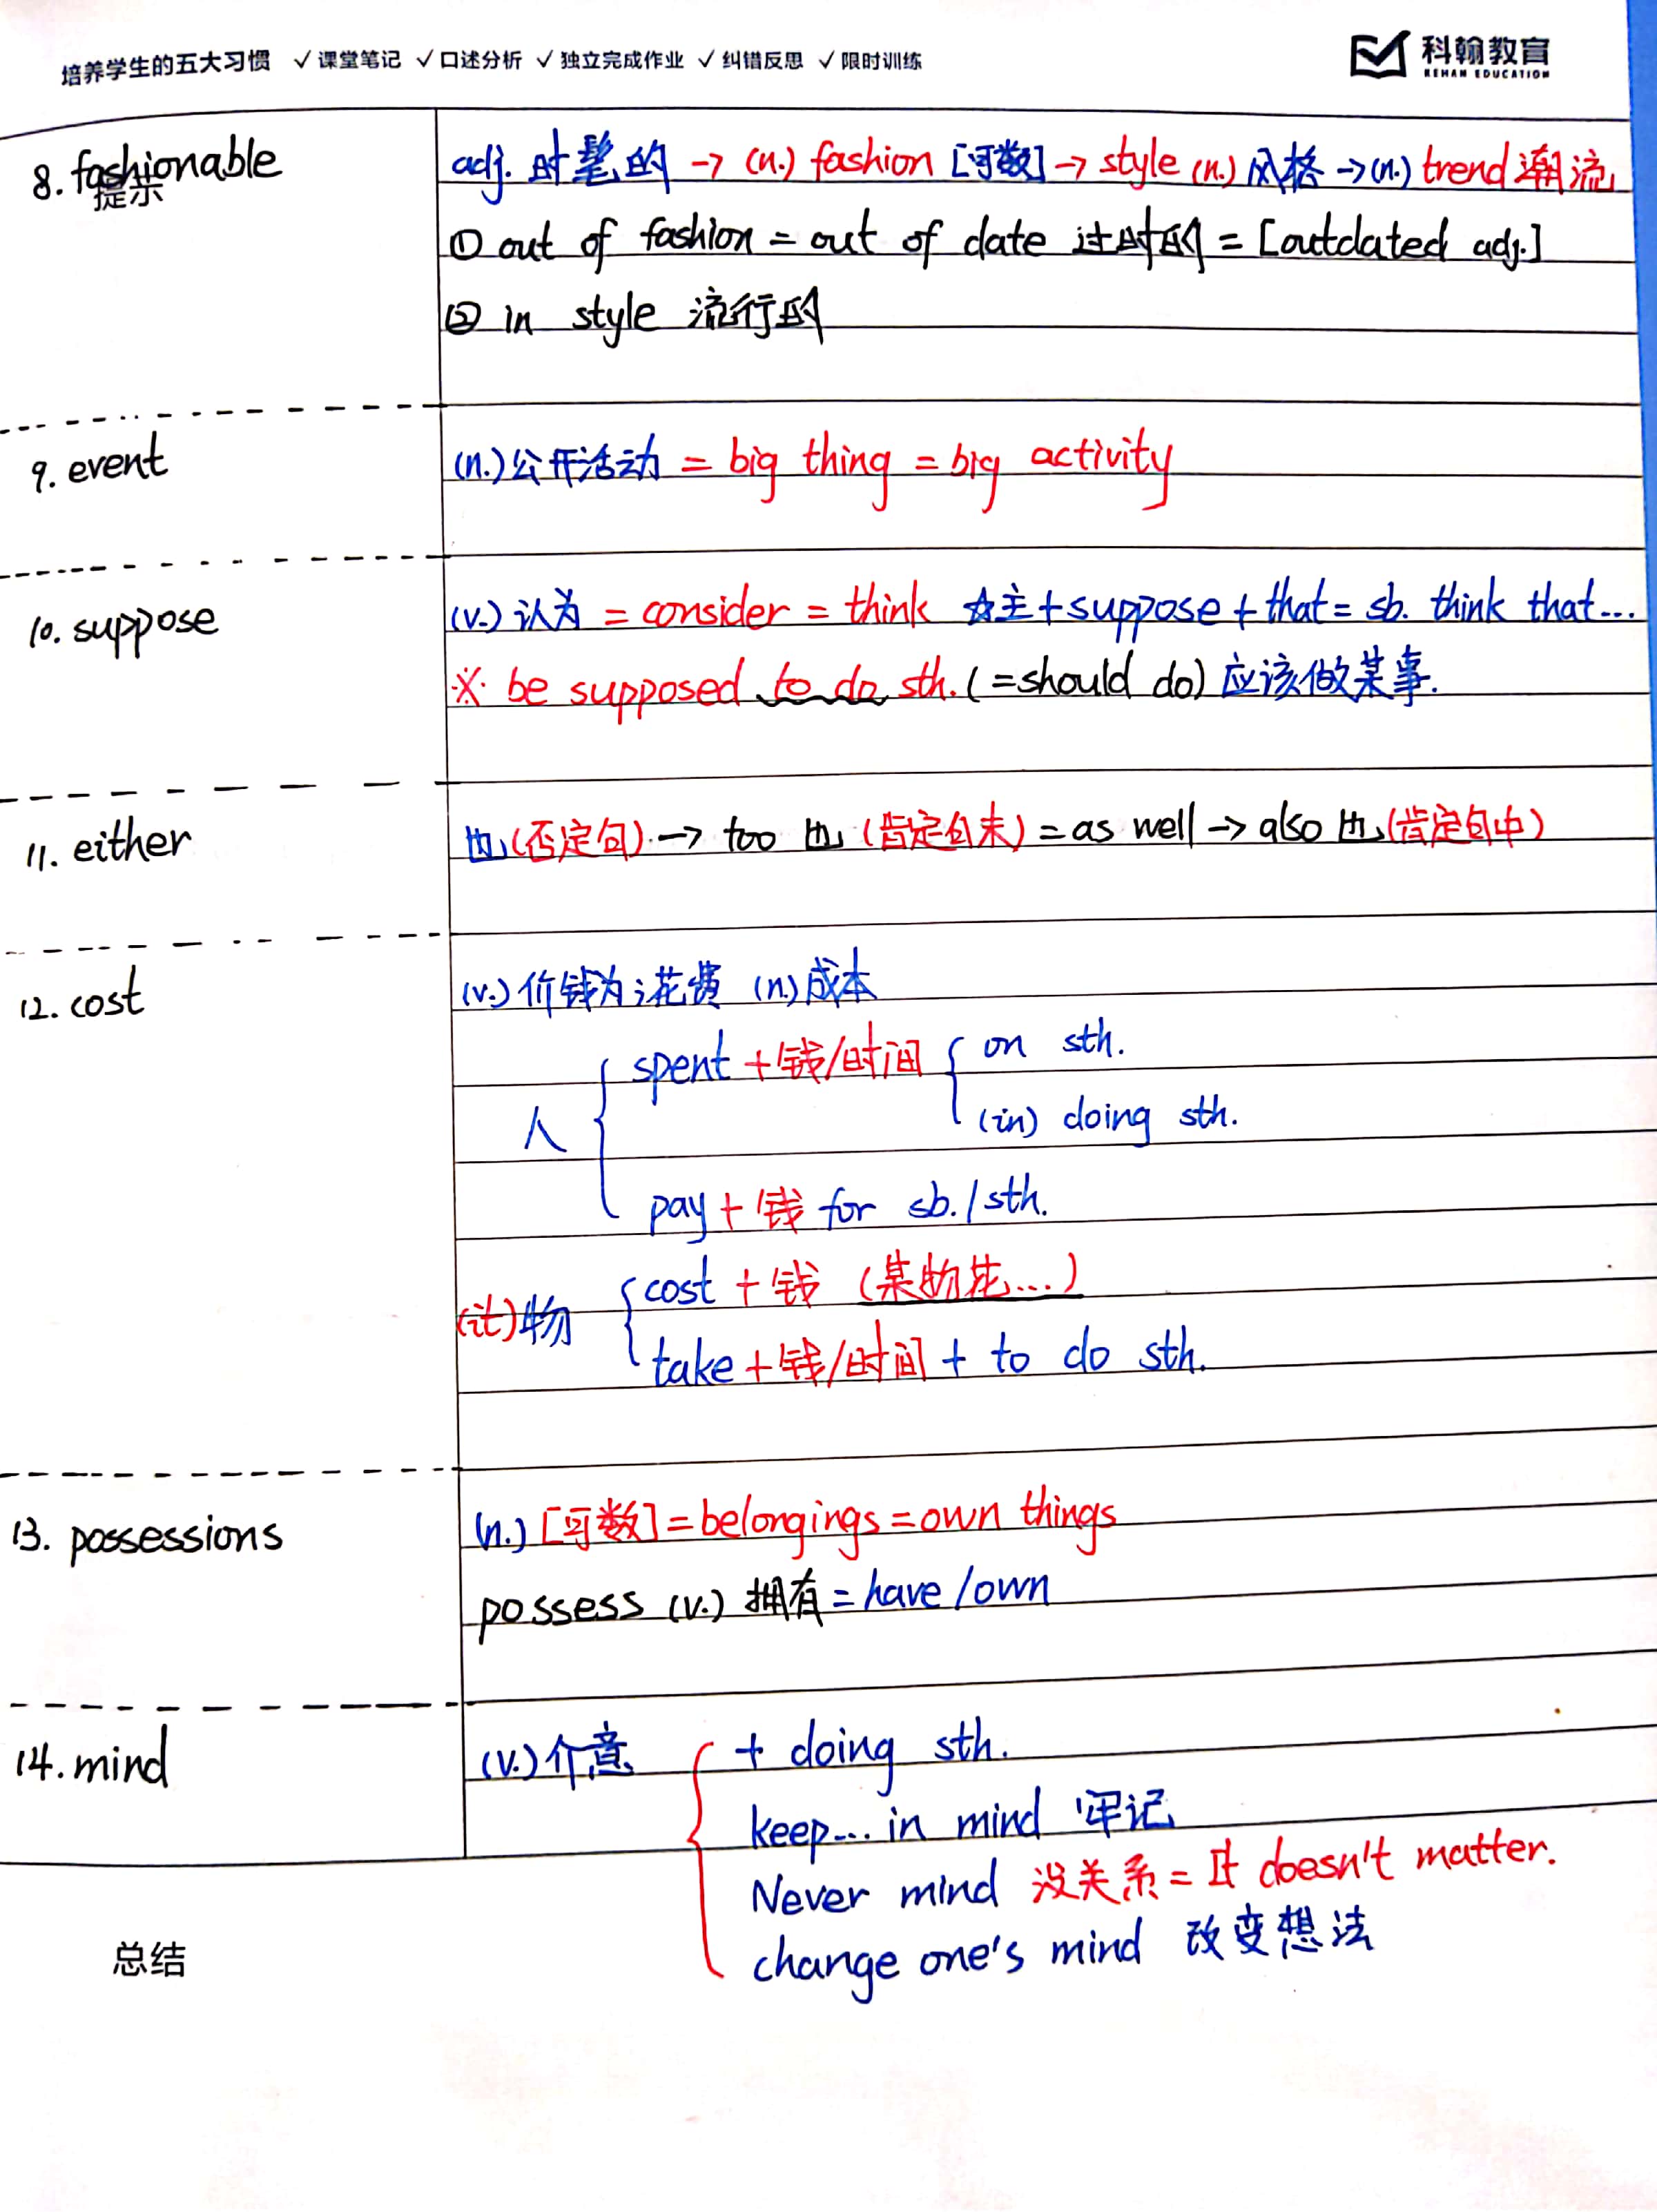 培养学生的五大习惯 ✓课堂笔记 ✓口述分析 ✓独立完成作业 ✓纠错反思 ✓限时训练
科翰教育
KEHAN EDUCATION
提示
8. fashionable adj. 时髦的 → (n.) fashion [可数] → style (n.) 风格 → (n.) trend 潮流
① out of fashion = out of date 过时的 = [outdated adj.]
② in style 流行的
9. event (n.) 公开活动 = big thing = big activity
10. suppose (v.) 认为 = consider = think ☆主+suppose+that= sb. think that...
※ be supposed to do sth. (=should do) 应该做某事.
11. either 也(否定句) → too 也 (肯定句末) = as well → also 也(肯定句中)
12. cost (v.) 价钱为;花费 (n.) 成本
spent +钱/时间 { on sth.
人 { (in) doing sth.
pay + 钱 for sb./sth.
cost + 钱 (某物花...)
(it)物 {
take +钱/时间 + to do sth.
13. possessions (n.) [可数] = belongings = own things
possess (v.) 拥有 = have / own
14. mind (v.) 介意 { + doing sth.
keep... in mind 牢记
Never mind 没关系 = It doesn't matter.
change one's mind 改变想法
总结